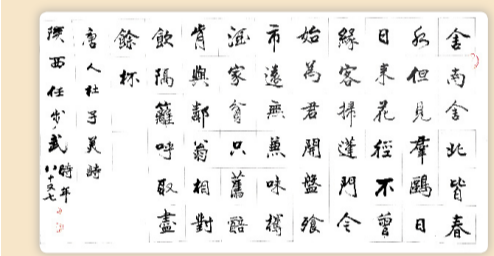 舍南舍北皆春
水但見羣鷗日
日来花徑不曾
緣客掃蓬門今
始為君開盤飱
市遠無兼味樽
酒家貧只舊醅
肯與鄰翁相對
飲隔籬呼取盡
餘杯
唐人杜子美詩
陝西任步武
時年
八十又七